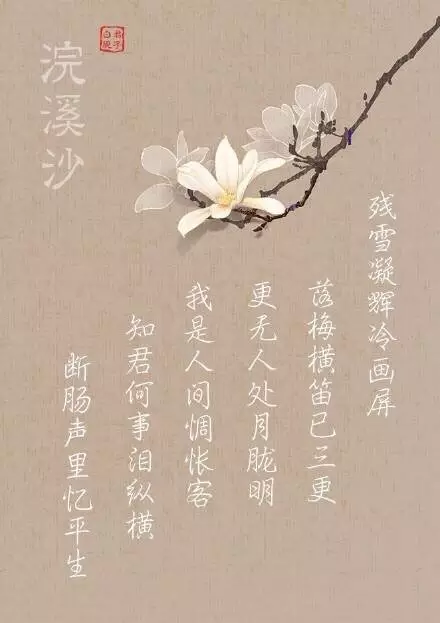 浣溪沙
残雪凝辉冷画屏
落梅横笛已三更
更无人处月胧明
我是人间惆怅客
知君何事泪纵横
断肠声里忆平生